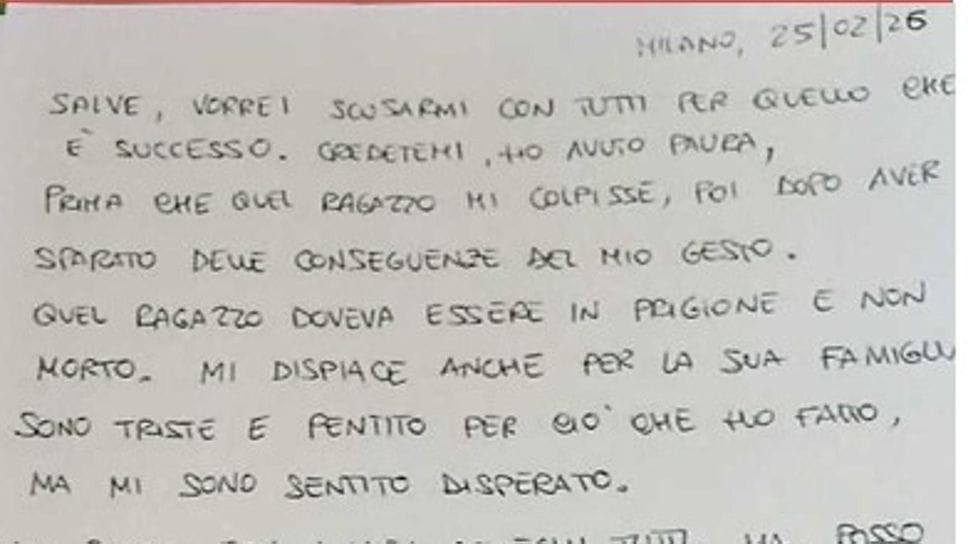 MILANO, 25/02/26
SALVE, VORREI SCUSARMI CON TUTTI PER QUELLO CHE
È SUCCESSO. CREDETEMI, HO AVUTO PAURA,
PRIMA CHE QUEL RAGAZZO MI COLPISSE, POI DOPO AVER
SPARATO DELLE CONSEGUENZE DEL MIO GESTO.
QUEL RAGAZZO DOVEVA ESSERE IN PRIGIONE E NON
MORTO. MI DISPIACE ANCHE PER LA SUA FAMIGLI
SONO TRISTE E PENTITO PER CIO' CHE HO FATTO,
MA MI SONO SENTITO DISPERATO.
TUTTI MA POSSO